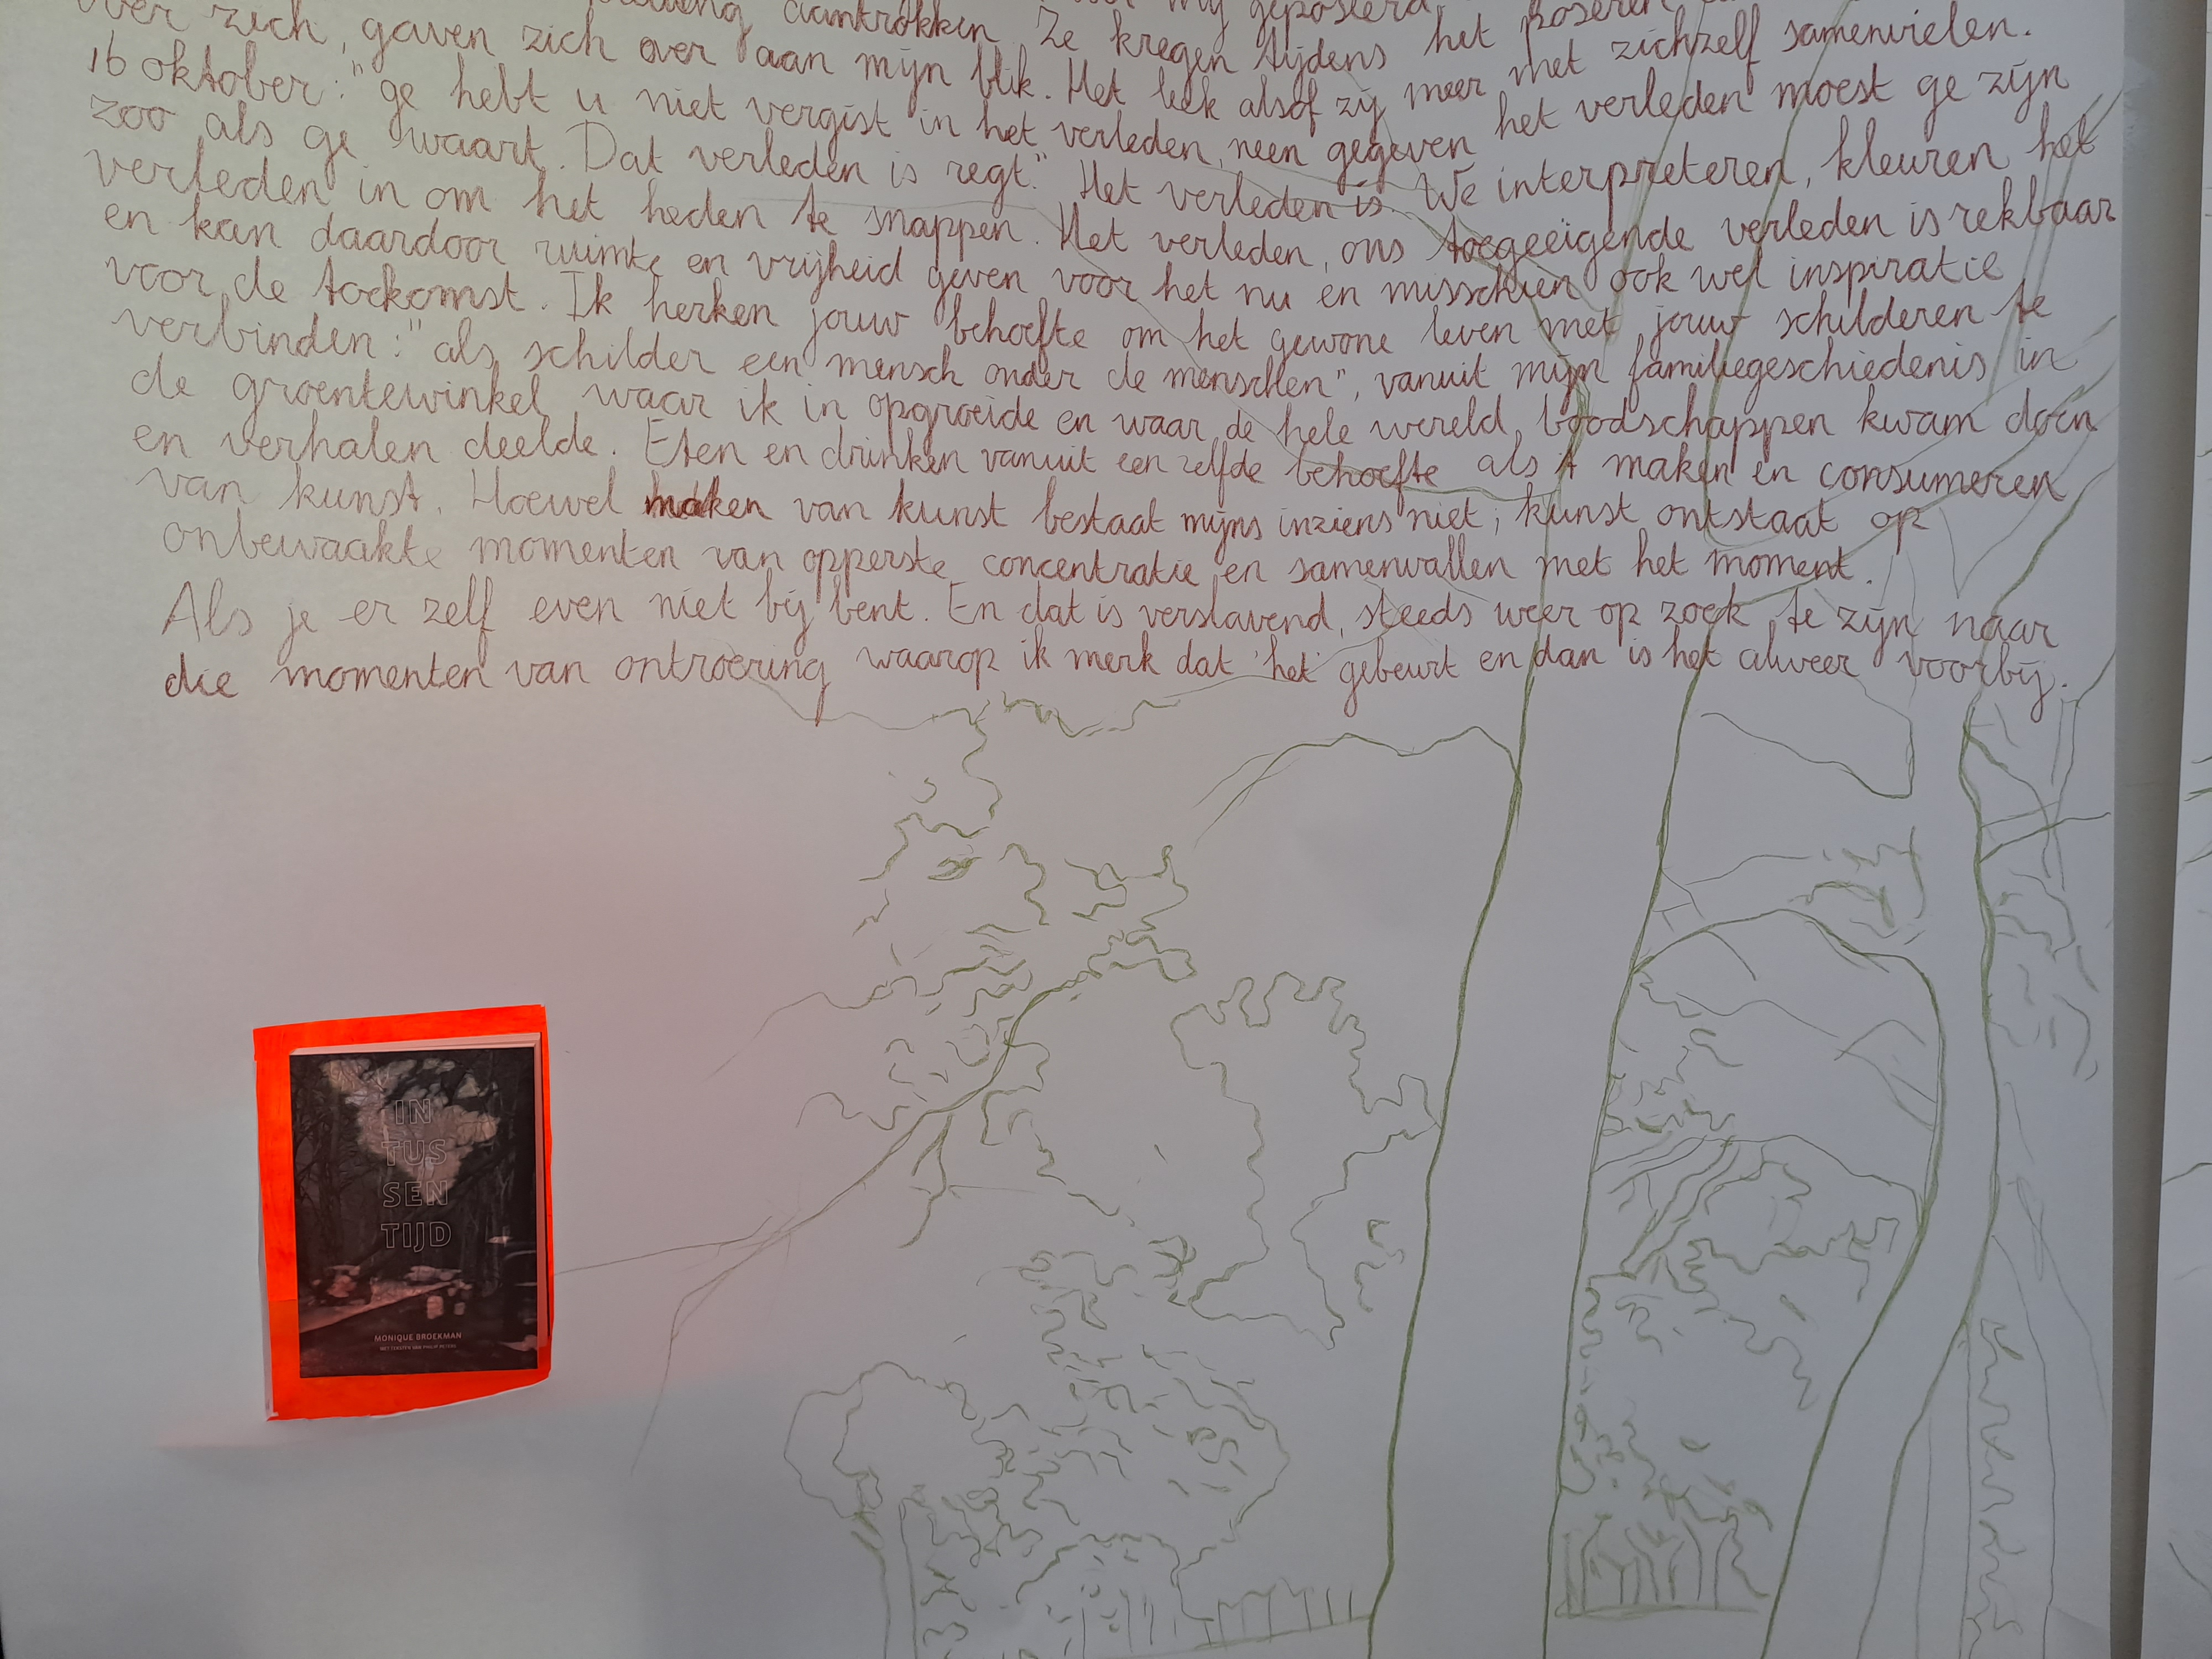 aantrokken. Ze kregen tijdens het poseren
over zich, gaven zich over aan mijn blik. Het leek alsof zij meer met zichzelf samenvielen.
16 oktober: "ge hebt u niet vergist in het verleden, neen gegeven het verleden moest ge zijn
zoo als ge waart. Dat verleden is regt." Het verleden is. We interpreteren, kleuren het
verleden in om het heden te snappen. Het verleden, ons toegeëigende verleden is rekbaar
en kan daardoor ruimte en vrijheid geven voor het nu en misschien ook wel inspiratie
voor de toekomst. Ik herken jouw behoefte om het gewone leven met jouw schilderen te
verbinden: "als schilder een mensch onder de menschen", vanuit mijn familiegeschiedenis in
de groentewinkel waar ik in opgroeide en waar de hele wereld boodschappen kwam doen
en verhalen deelde. Eten en drinken vanuit een zelfde behoefte als 't maken en consumeren
van kunst. Hoewel maken van kunst bestaat mijns inziens niet; kunst ontstaat op
onbewaakte momenten van opperste concentratie en samenvallen met het moment.
Als je er zelf even niet bij bent. En dat is verslavend, steeds weer op zoek te zijn naar
die momenten van ontroering waarop ik merk dat 'het' gebeurt en dan is het alweer voorbij.
IN
TUS
SEN
TIJD
MONIQUE BROEKMAN
MET TEKSTEN VAN PHILIP PETERS